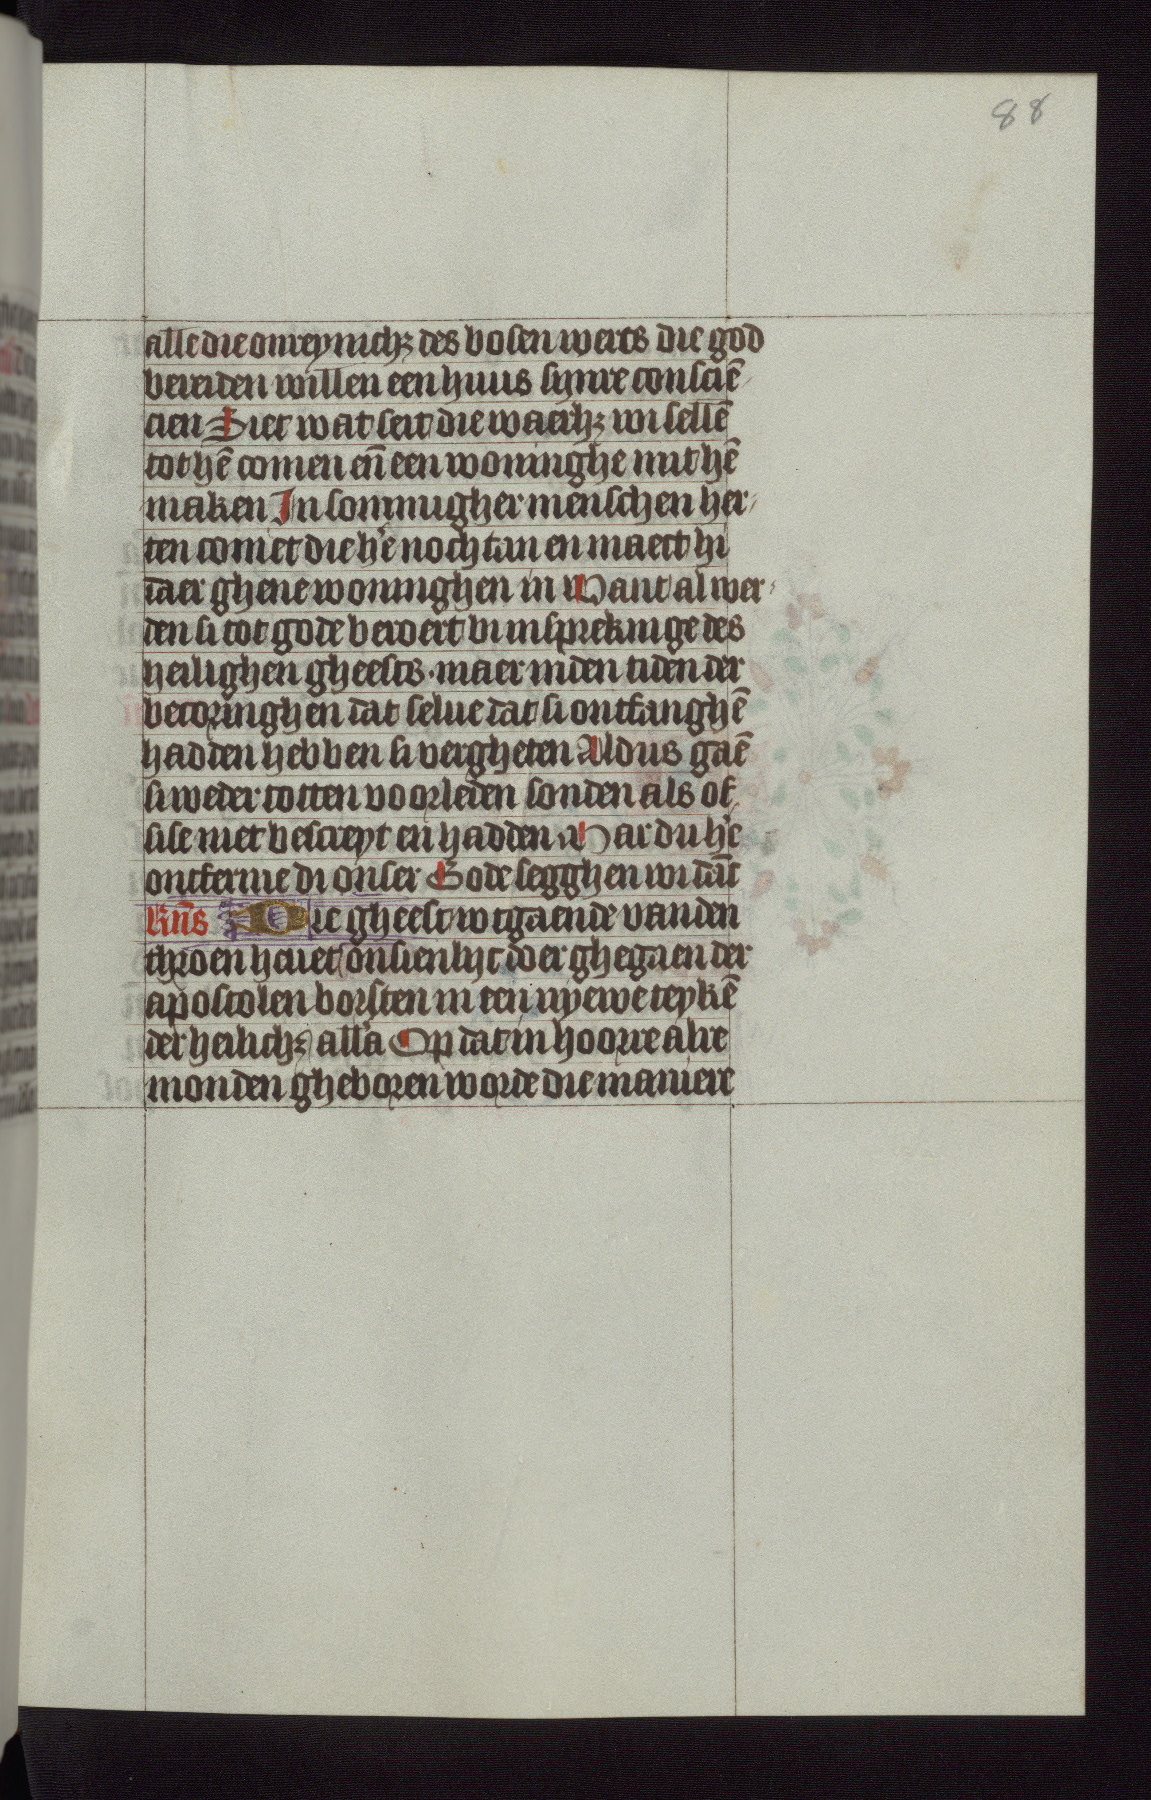 88
alle die onreynichꝫ des bosen wercs die god
bereiden willen een huus synre consciē
cien Siet wat seit die waerhꝫ wi sellē
tot hē comen eñ een woninghe mit hē
maken In sommigher menschen her
ten comet die he'e nochtan en maect hi
daer ghene woninghen in Want al wer
den si tot gode beroert bi insprekinge des
heilighen gheests · maer inden tiden der
becoringhen dat selue dat si ontfanghē
hadden hebben si vergheten Aldus gaē
si weder totten voorleden sonden als of
sise niet bescreyt en hadden Mar du he'e
ontferme di onser Gode segghen wi dāc
Rn̄s Die gheest wtgaende vanden
throen heuet onsienlyc doerghegaen der
apostolen borsten in een nyewe teykē
der heilichꝫ all'a Op dat in hoorre alre
monden gheboren worde die maniere